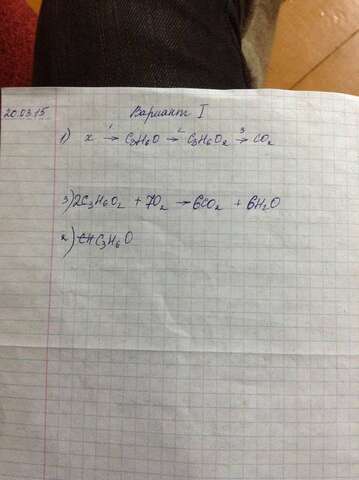 20.03.15
Вариант I
1) x 1→ C3H6O 2→ C3H6O2 3→ CO2
3) 2C3H6O2 + 7O2 → 6CO2 + 6H2O
2) C3H6O